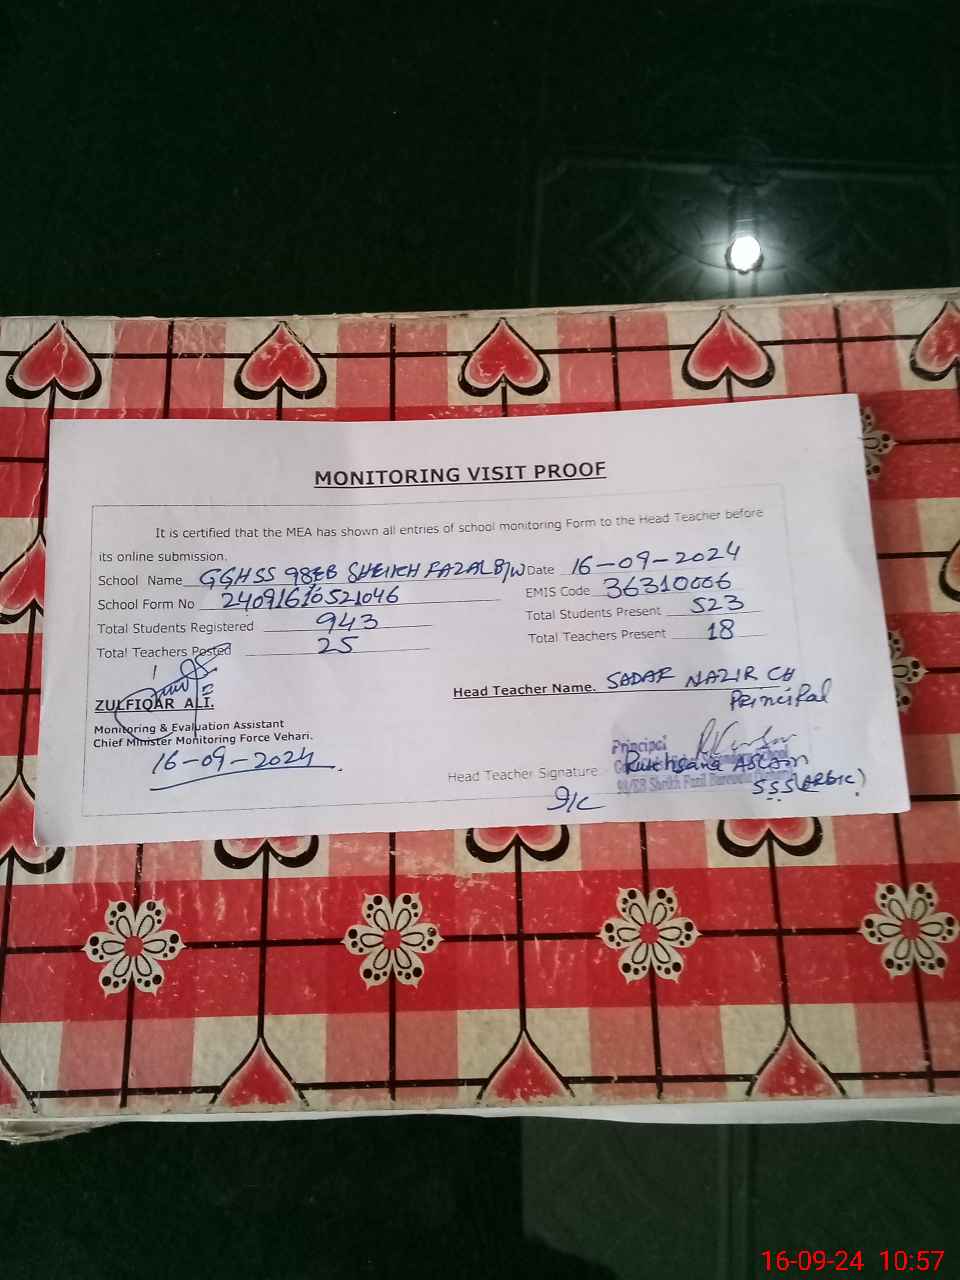 MONITORING VISIT PROOF
It is certified that the MEA has shown all entries of school monitoring Form to the Head Teacher before
its online submission.
School Name GGHSS 98EB SHEIKH FAZAL B/W Date 16-09-2024
School Form No 24091610521046 EMIS Code 36310006
Total Students Registered 943 Total Students Present 523
Total Teachers Posted 25 Total Teachers Present 18
ZULFIQAR ALI. Head Teacher Name. SADAF NAZIR CH
Principal
Monitoring & Evaluation Assistant
Chief Minister Monitoring Force Vehari.
16-09-2024
Principal
School
Rukhsana ASLAM
Head Teacher Signature Sheikh Fazil
SSS(ARBIC)
I/C
16-09-24 10:57